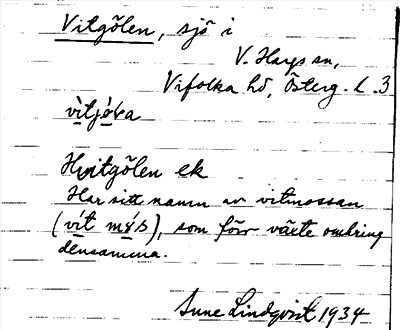 Vitgölen, sjö i
V. Hargs sn,
Vifolka hd, Österg. l. 3
Hvitgölen ek
Har sitt namn av vitmossan
(vít), som förr växte omkring
densamma.
Sune Lindqvist 1934